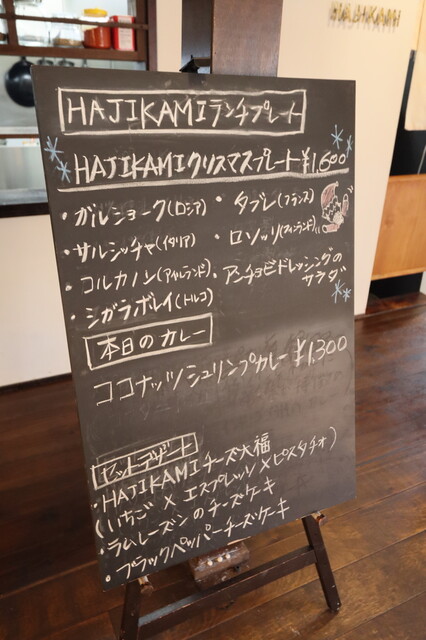 HAJIKAMI
HAJIKAMIランチプレート
HAJIKAMIクリスマスプレート ¥1,600
・ガルショーク(ロシア)
・タブレ(フランス)
・サルシッチャ(イタリア)
・ロソッリ(フィンランド)
・コルカノン(アイルランド)
・アンチョビドレッシングの
サラダ
・シガラボレイ(トルコ)
本日のカレー
ココナッツシュリンプカレー ¥1,300
セットデザート
・HAJIKAMIチーズ大福
(いちご×エスプレッソ×ピスタチオ)
・ラムレーズンのチーズケーキ
・ブラックペッパーチーズケーキ